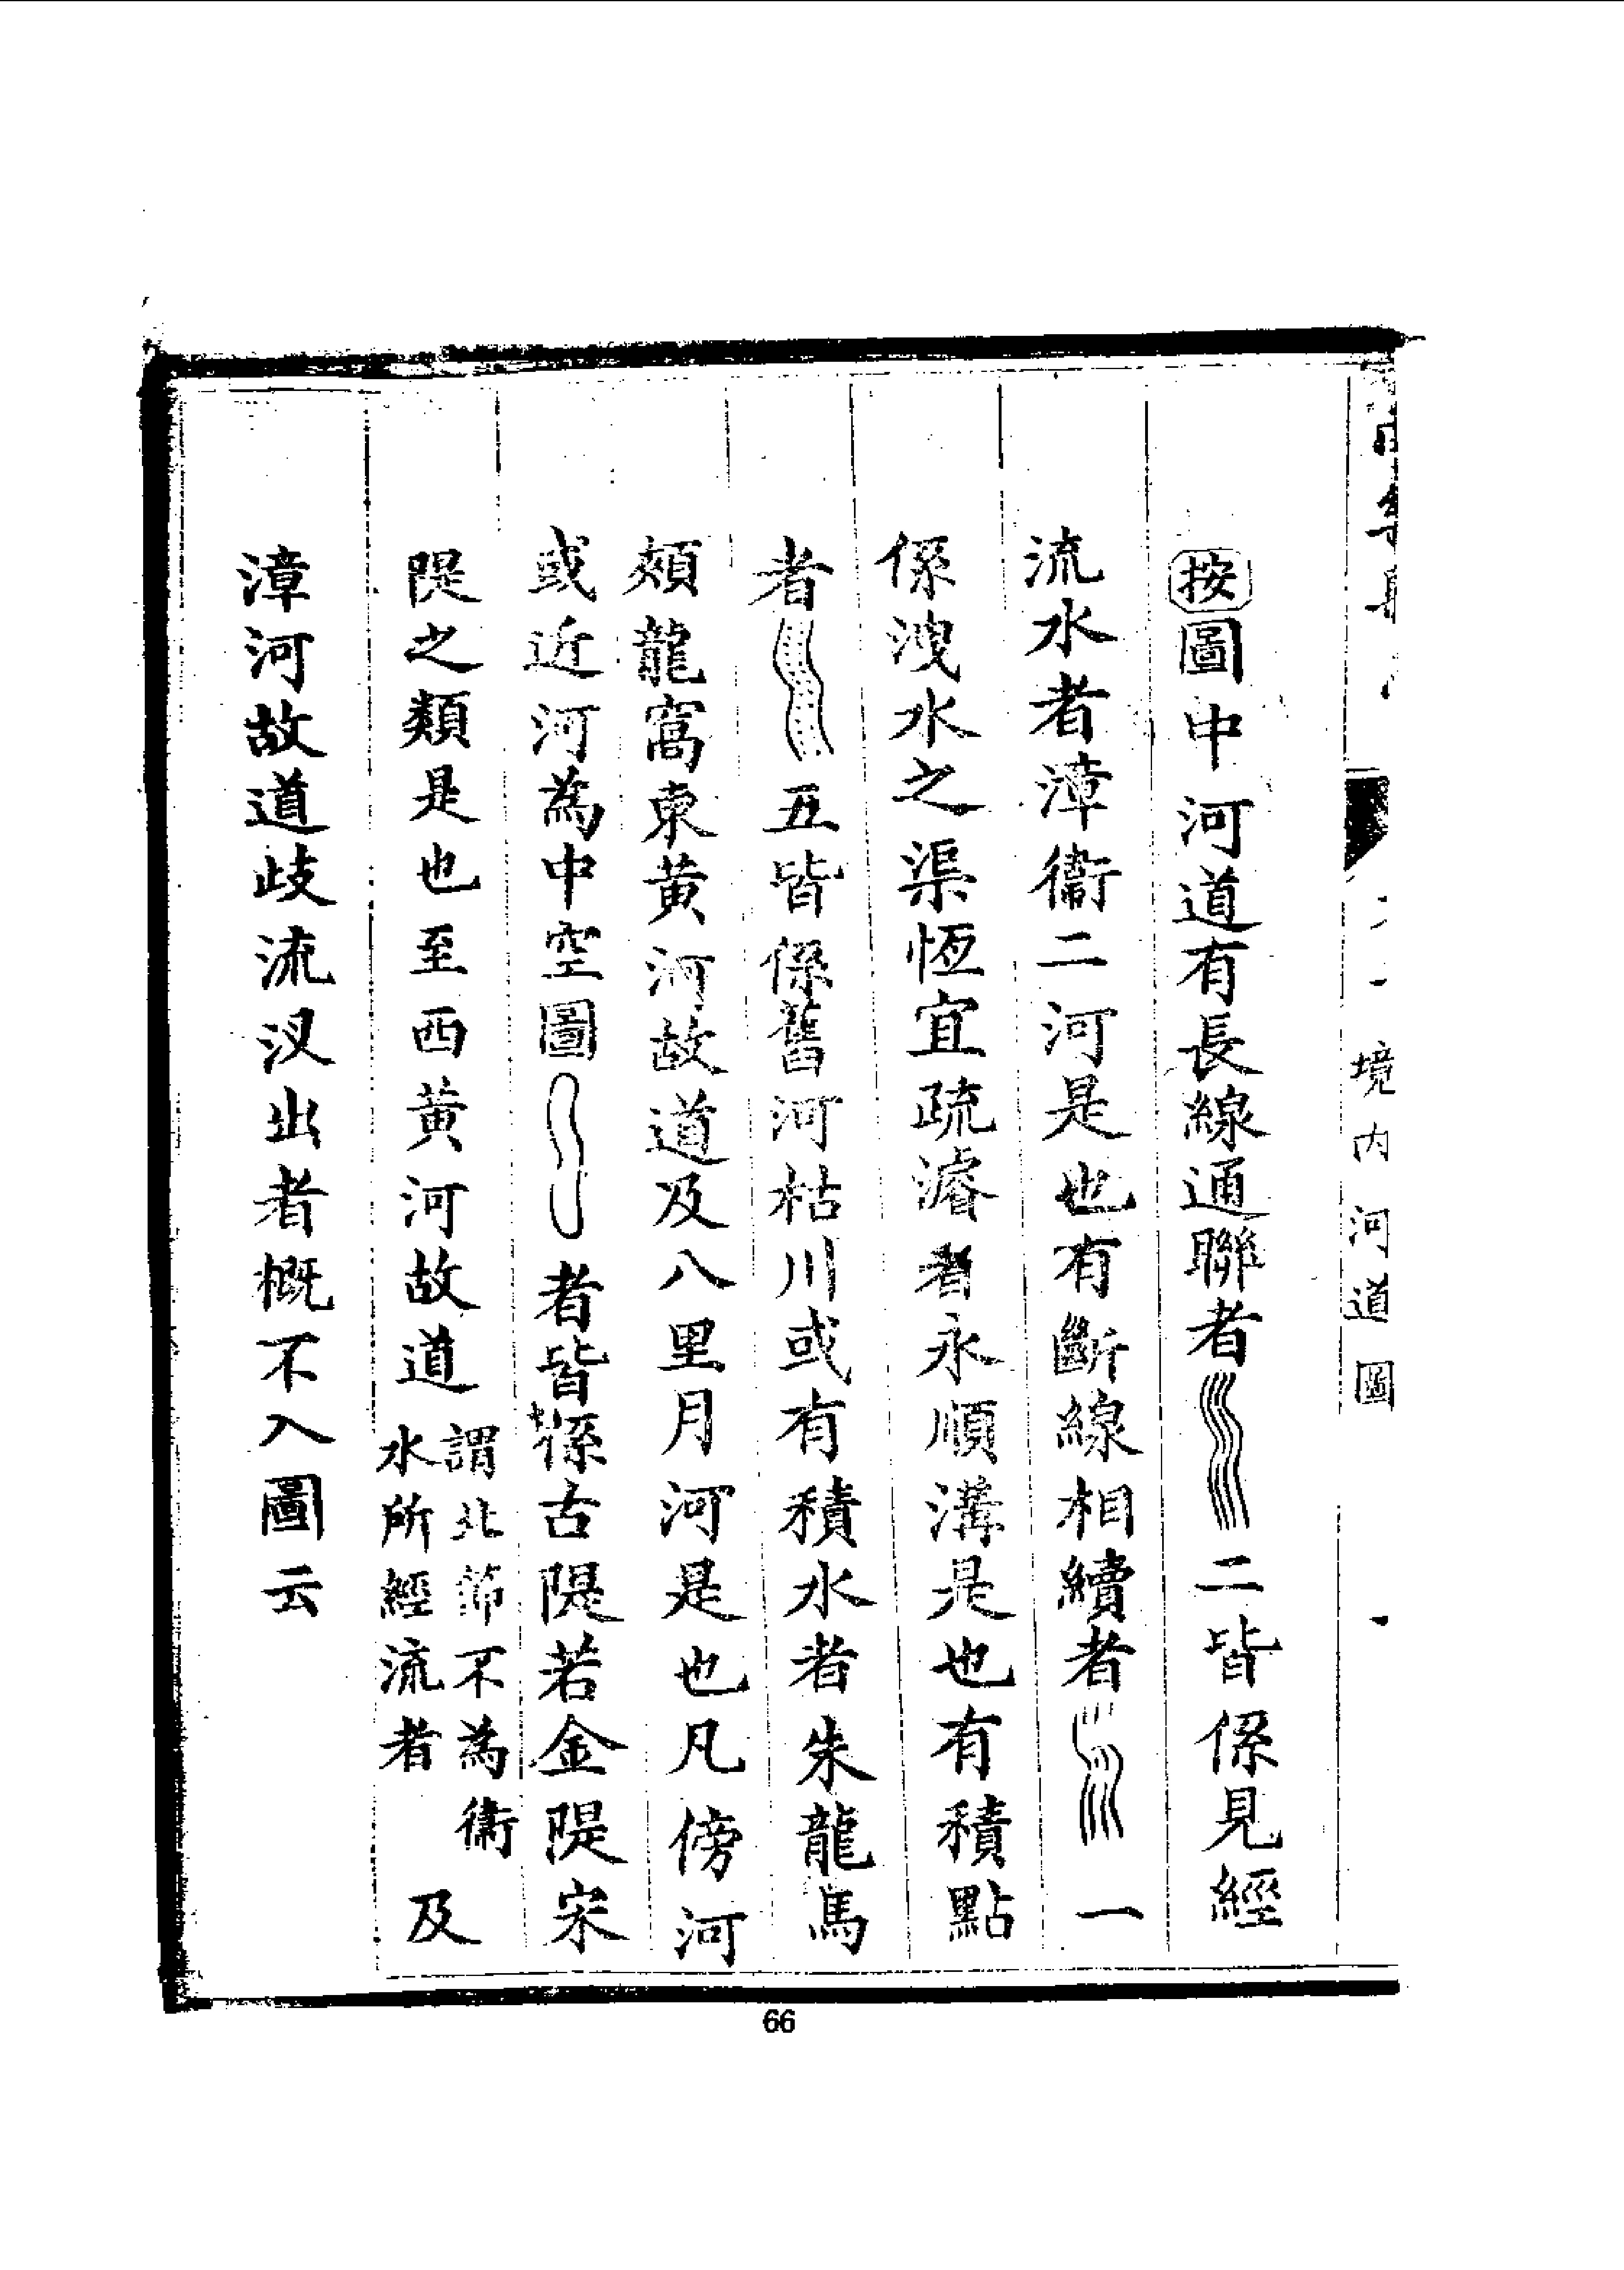 境內河道圖
按圖中河道有長線通聯者二皆係見經
流水者漳衛二河是也有斷線相續者一
係洩水之渠恆宜疏濬者永順溝是也有積點
者五皆係舊河枯川或有積水者朱龍馬
頰龍窩東黃河故道及八里月河是也凡傍河
或近河為中空圖者皆係古隄若金隄宋
隄之類是也至西黃河故道謂北節不為衛水所經流者及
漳河故道歧流汊出者概不入圖云
66